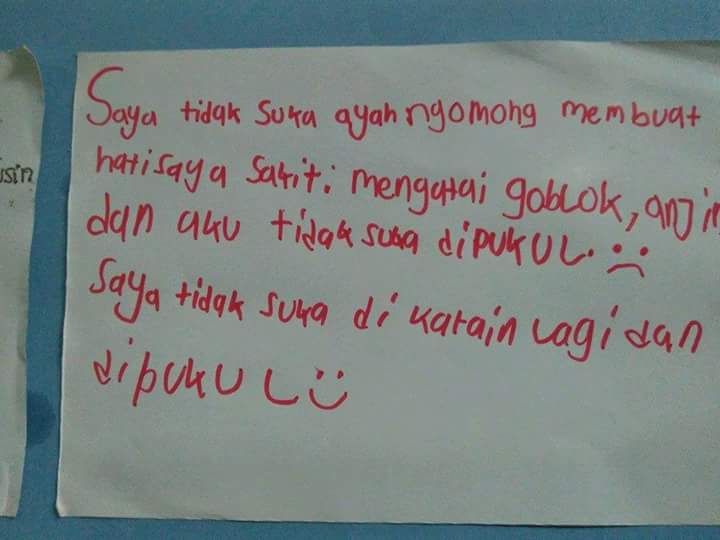 Saya tidak suka ayah ngomong membuat
hati saya sakit: mengatai goblok, anjin
dan aku tidak suka dipukul. :(
Saya tidak suka di katain lagi dan
dipukul :)
usin